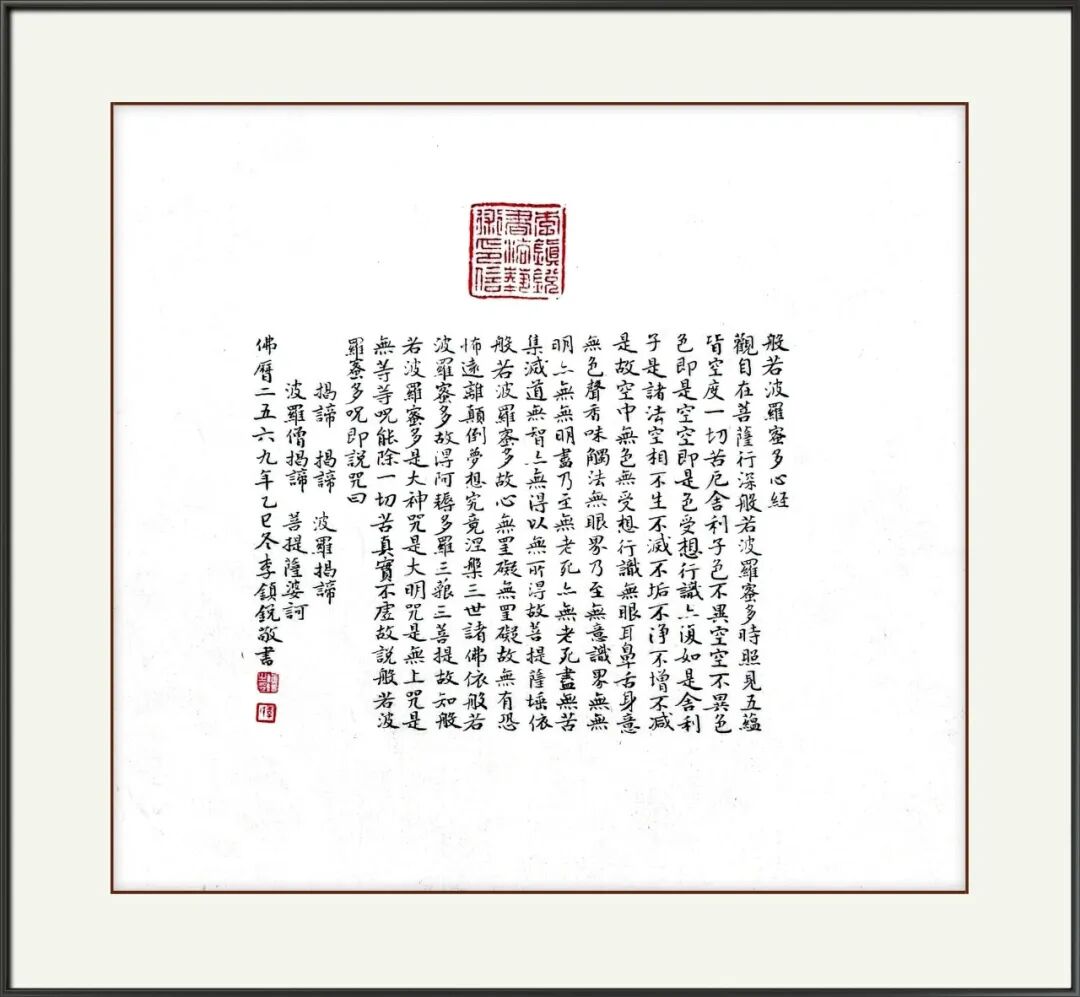 李鎮銳
書法藝
術印信
般若波羅蜜多心経
觀自在菩薩行深般若波羅蜜多時照見五蘊
皆空度一切苦厄舍利子色不異空空不異色
色即是空空即是色受想行識亦復如是舍利
子是諸法空相不生不滅不垢不淨不增不減
是故空中無色無受想行識無眼耳鼻舌身意
無色聲香味觸法無眼界乃至無意識界無無
明亦無無明盡乃至無老死亦無老死盡無苦
集滅道無智亦無得以無所得故菩提薩埵依
般若波羅蜜多故心無罣礙無罣礙故無有恐
怖遠離顛倒夢想究竟涅槃三世諸佛依般若
波羅蜜多故得阿耨多羅三藐三菩提故知般
若波羅蜜多是大神咒是大明咒是無上咒是
無等等咒能除一切苦真實不虛故説般若波
羅蜜多咒即説咒曰
揭諦 揭諦 波羅揭諦
波羅僧揭諦 菩提薩婆訶
佛曆二五六九年乙巳冬李鎮銳敬書